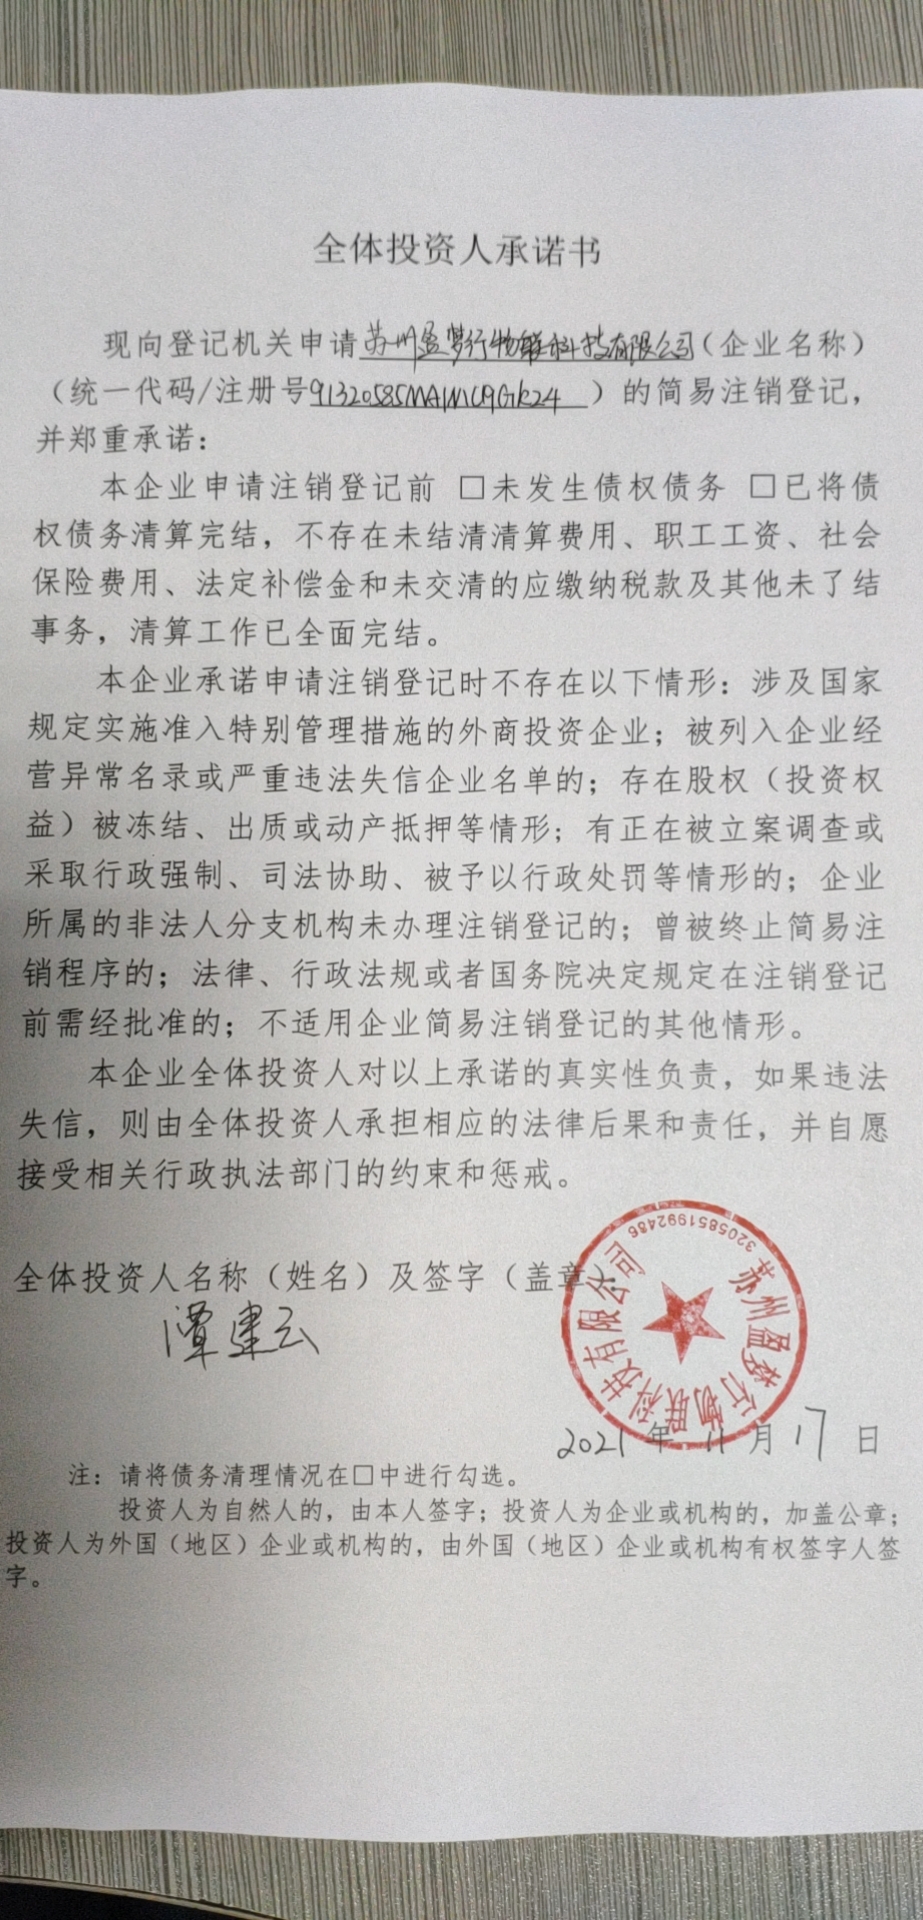 全体投资人承诺书
现向登记机关申请苏州盈梦行物联科技有限公司（企业名称）
（统一代码/注册号91320585MA1MC19G1K24）的简易注销登记，
并郑重承诺：
本企业申请注销登记前 □未发生债权债务 □已将债
权债务清算完结，不存在未结清清算费用、职工工资、社会
保险费用、法定补偿金和未交清的应缴纳税款及其他未了结
事务，清算工作已全面完结。
本企业承诺申请注销登记时不存在以下情形：涉及国家
规定实施准入特别管理措施的外商投资企业；被列入企业经
营异常名录或严重违法失信企业名单的；存在股权（投资权
益）被冻结、出质或动产抵押等情形；有正在被立案调查或
采取行政强制、司法协助、被予以行政处罚等情形的；企业
所属的非法人分支机构未办理注销登记的；曾被终止简易注
销程序的；法律、行政法规或者国务院决定规定在注销登记
前需经批准的；不适用企业简易注销登记的其他情形。
本企业全体投资人对以上承诺的真实性负责，如果违法
失信，则由全体投资人承担相应的法律后果和责任，并自愿
接受相关行政执法部门的约束和惩戒。
全体投资人名称（姓名）及签字（盖章）：
潭建云
苏州盈梦行物联科技有限公司
3205851992486
2021年11月17日
注：请将债务清理情况在□中进行勾选。
投资人为自然人的，由本人签字；投资人为企业或机构的，加盖公章；
投资人为外国（地区）企业或机构的，由外国（地区）企业或机构有权签字人签
字。